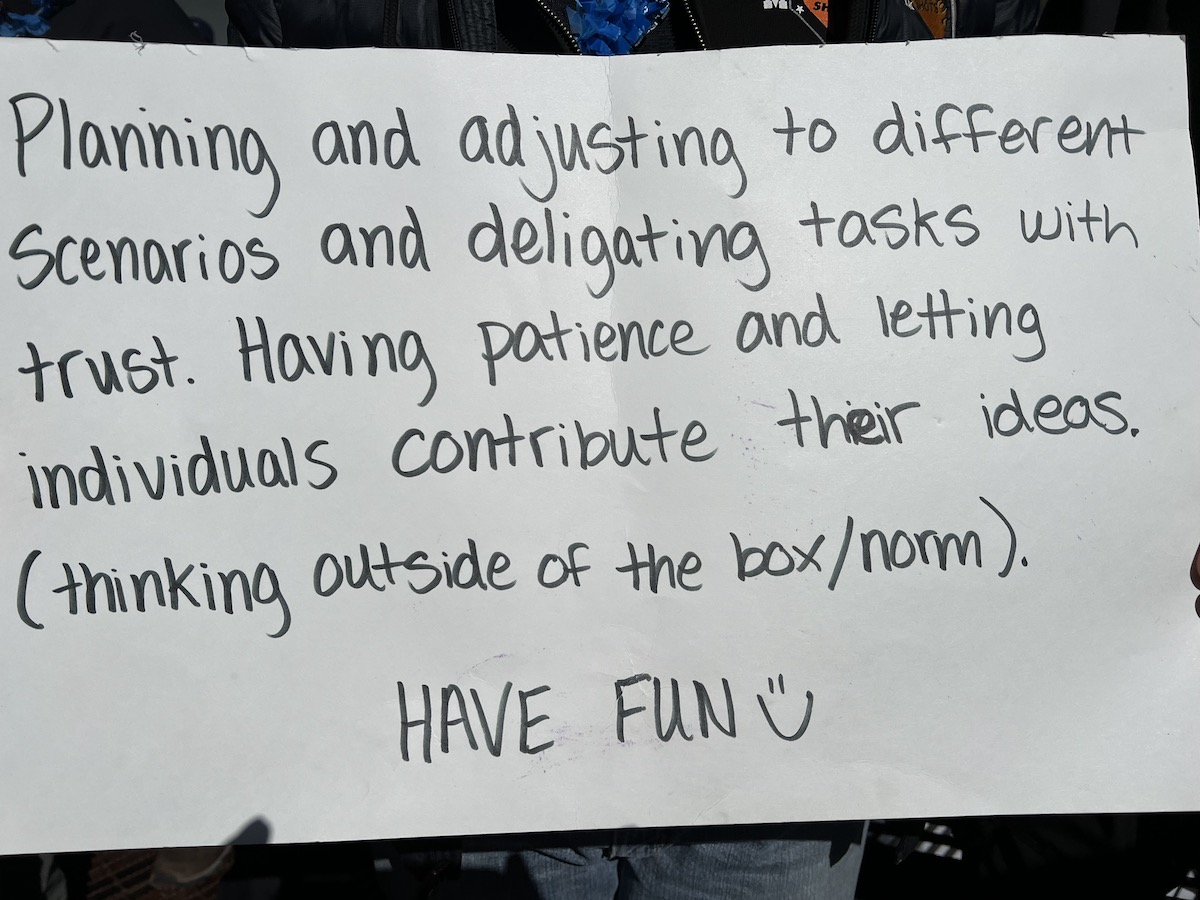 Planning and adjusting to different
scenarios and deligating tasks with
trust. Having patience and letting
individuals contribute their ideas.
(thinking outside of the box/norm).
HAVE FUN Ü